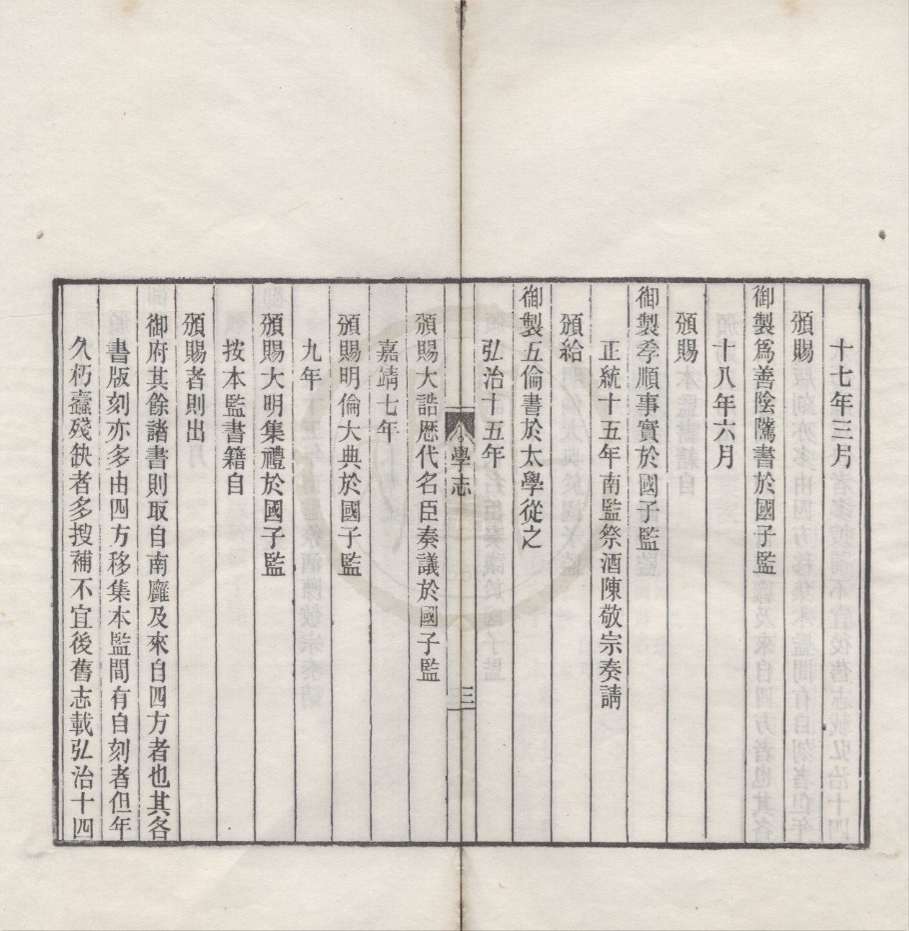 十七年三月
頒賜
御製爲善陰隲書於國子監
十八年六月
頒賜
御製孝順事實於國子監
正統十五年南監祭酒陳敬宗奏請
頒給
御製五倫書於太學從之
弘治十五年
學志
三
頒賜大誥歷代名臣奏議於國子監
嘉靖七年
頒賜明倫大典於國子監
九年
頒賜大明集禮於國子監
按本監書籍自
頒賜者則出
御府其餘諸書則取自南廱及來自四方者也其各
書版刻亦多由四方移集本監間有自刻者但年
久朽蠧殘缺者多搜補不宜後舊志載弘治十四